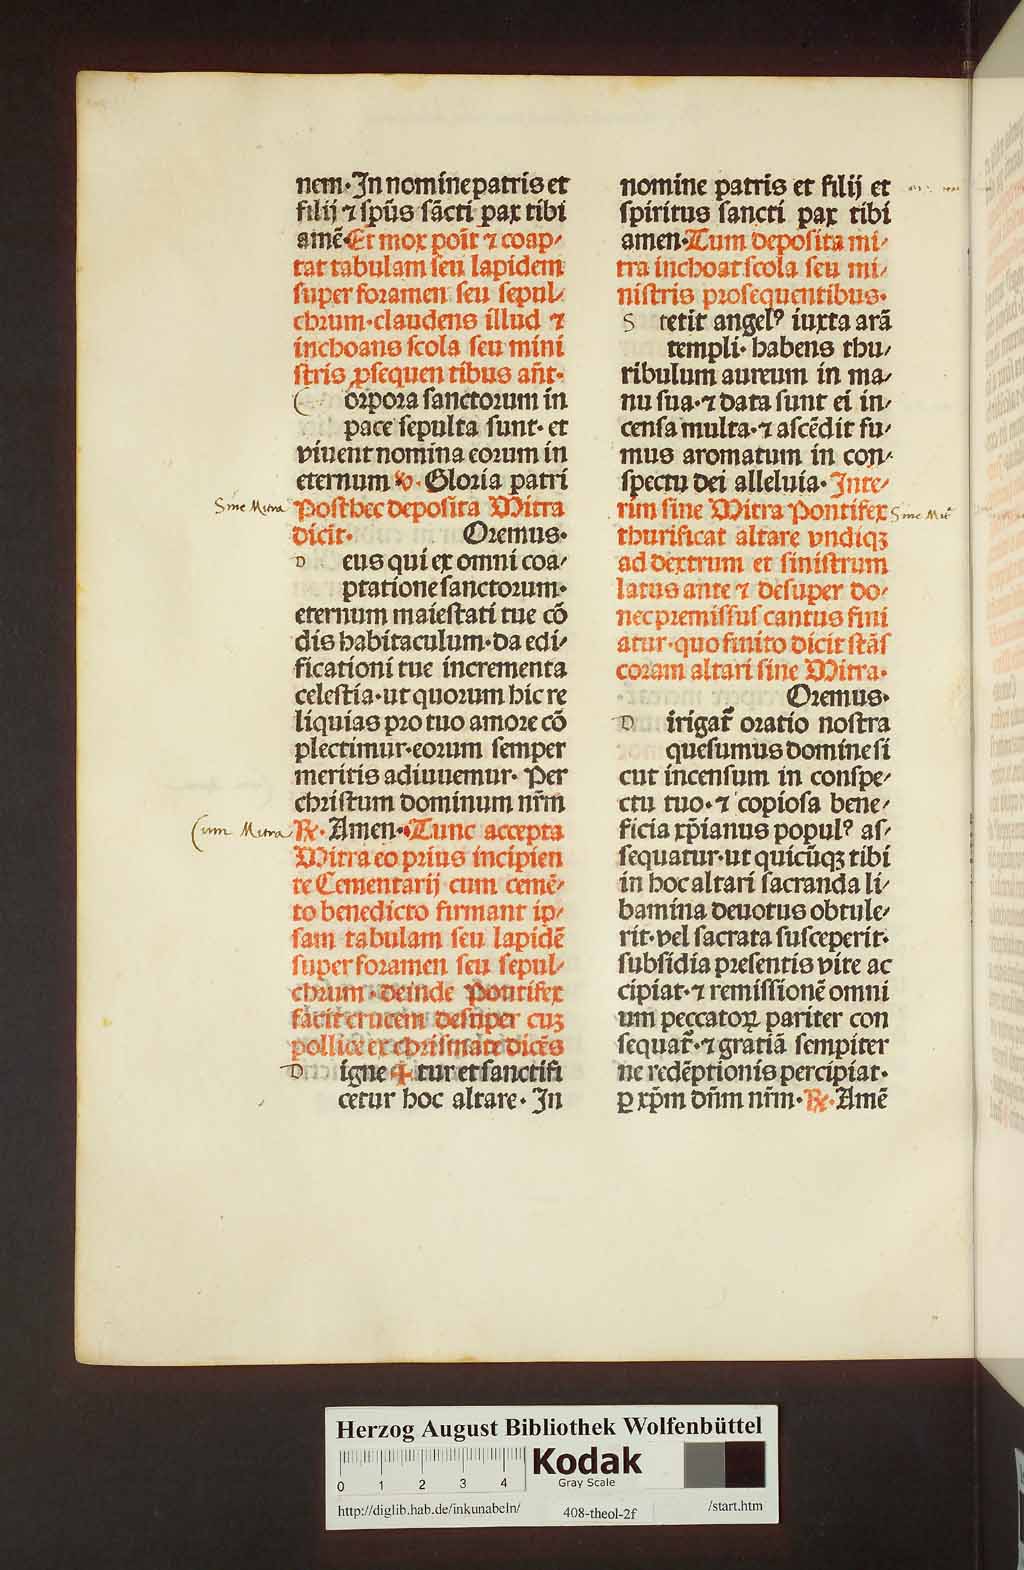 nem·In nomine patris et
filij ⁊ spūs sācti pax tibi
amē·Et mox poīt ⁊ coap⸗
tat tabulam seu lapidem
super foramen seu sepul⸗
chrum·claudens illud ⁊
inchoans scola seu mini
stris ꝓsequen tibus añt·
C orpora sanctorum in
pace sepulta sunt· et
viuent nomina eorum in
eternum ℣· Gloria patri
Sine Mitra
Posthec deposita Mitra
dicit· Oremus·
D eus qui ex omni coa⸗
ptatione sanctorum·
eternum maiestati tue cō
dis habitaculum·da edi⸗
ficationi tue incrementa
celestia·ut quorum hic re
liquias pro tuo amore cō
plectimur·eorum semper
meritis adiuuemur· Per
christum dominum nr̄m
Cum Mitra
℟· Amen·Tunc accepta
Mitra eo prius incipien
te Cementarij cum cemē⸗
to benedicto firmant ip⸗
sam tabulam seu lapidē
super foramen seu sepul⸗
chrum·deinde Pontifex
facit crucem desuper cuꝫ
pollice ex chrismate dicēs
D igne ✠ tur et sanctifi
cetur hoc altare· In
nomine patris et filij et
spiritus sancti pax tibi
amen·Tum deposita mi⸗
tra inchoat scola seu mi⸗
nistris prosequentibus·
S tetit angelꝰ iuxta arā
templi· habens thu⸗
ribulum aureum in ma⸗
nu sua·⁊ data sunt ei in⸗
censa multa·⁊ ascēdit fu⸗
mus aromatum in con⸗
spectu dei alleluia· Inte⸗
rim sine Mitra Pontifex
Sine Mit̄
thurificat altare vndiqꝫ
ad dextrum et sinistrum
latus ante ⁊ desuper do⸗
nec premissus cantus fini
atur·quo finito dicit stās
coram altari sine Mitra·
Oremus·
D irigat᷑ oratio nostra
quesumus domine si
cut incensum in conspe⸗
ctu tuo·⁊ copiosa bene⸗
ficia xp̄ianus populꝰ as⸗
sequatur·ut quicūqꝫ tibi
in hoc altari sacranda li⸗
bamina deuotus obtule⸗
rit·vel sacrata susceperit·
subsidia presentis vite ac
cipiat·⁊ remissionē omni
um peccatoꝝ pariter con
sequat᷑·⁊ gratiā sempiter
ne redēptionis percipiat·
ꝑ xp̄m dn̄m nr̄m·℟·Amē
Herzog August Bibliothek Wolfenbüttel
0 1 2 3 4
Kodak
Gray Scale
http://diglib.hab.de/inkunabeln/ 408-theol-2f /start.htm